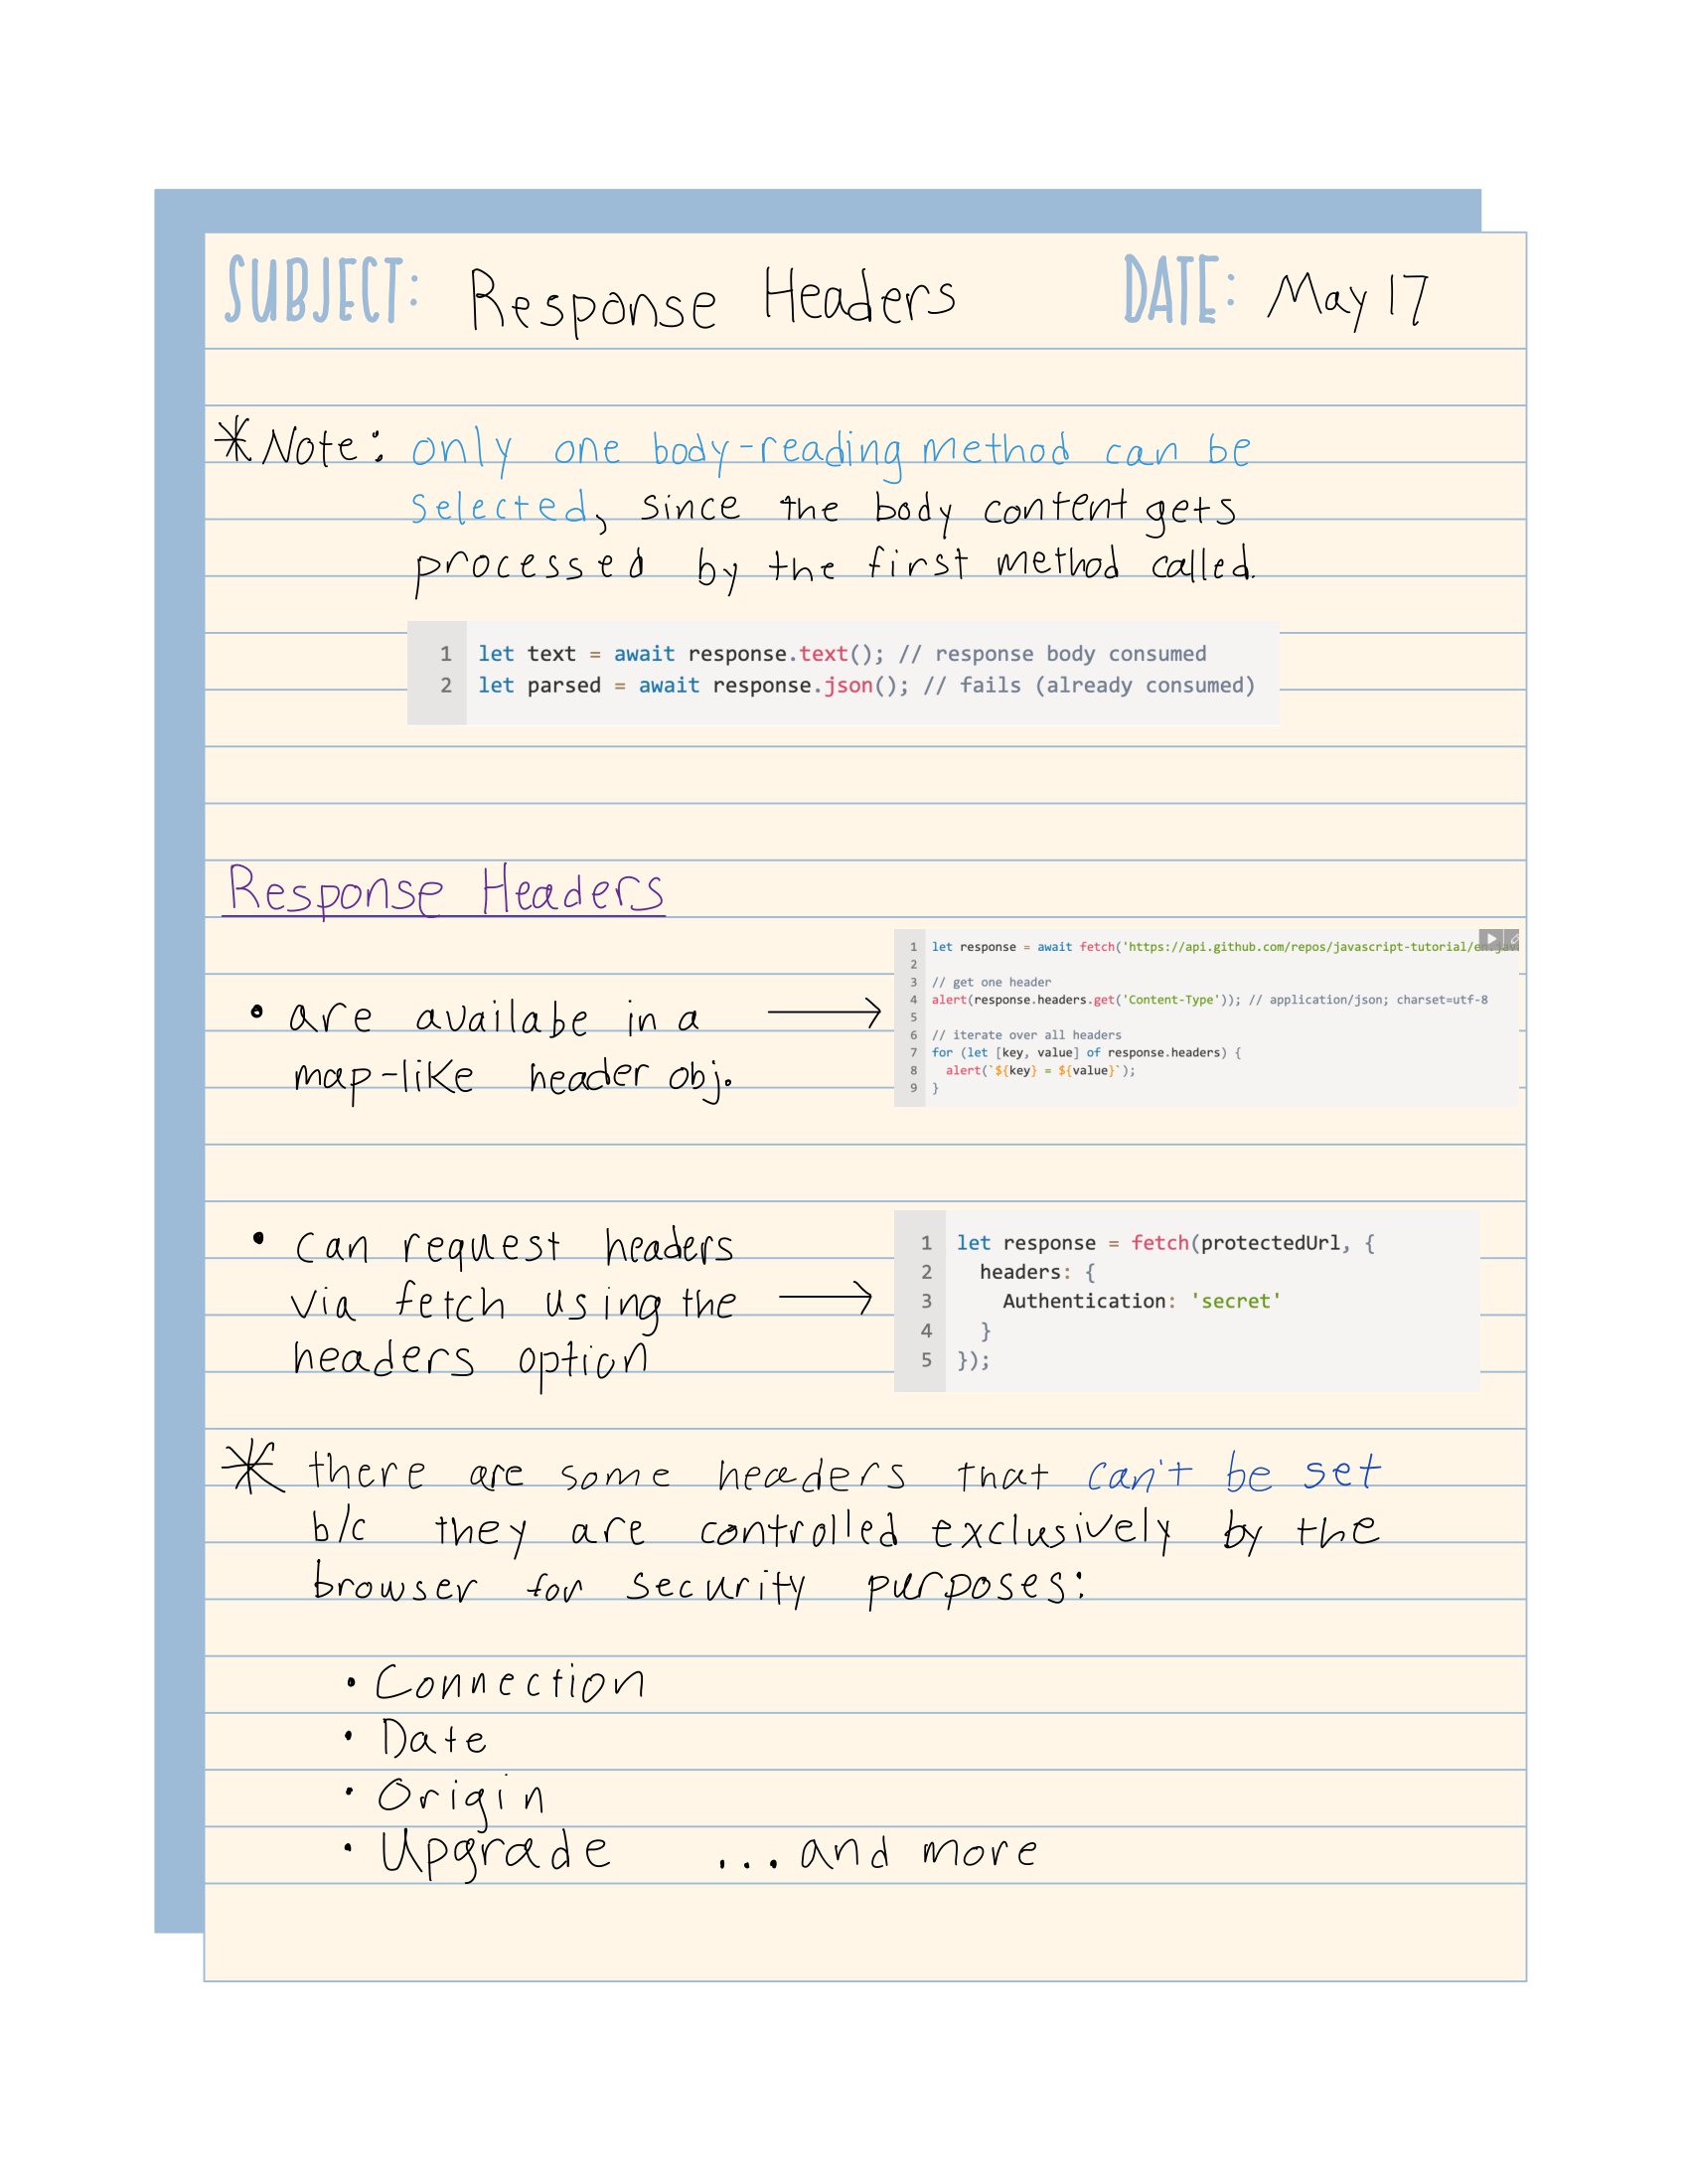 SUBJECT: Response Headers DATE: May 17
*Note: only one body-reading method can be
selected, since the body content gets
processed by the first method called.
1 let text = await response.text(); // response body consumed
2 let parsed = await response.json(); // fails (already consumed)
Response Headers
• are availabe in a
map-like header obj.
1 let response = await fetch('https://api.github.com/repos/javascript-tutorial/en.jav
2
3 // get one header
4 alert(response.headers.get('Content-Type')); // application/json; charset=utf-8
5
6 // iterate over all headers
7 for (let [key, value] of response.headers) {
8 alert(`${key} = ${value}`);
9 }
• can request headers
via fetch using the
headers option
1 let response = fetch(protectedUrl, {
2 headers: {
3 Authentication: 'secret'
4 }
5 });
* there are some headers that can't be set
b/c they are controlled exclusively by the
browser for security purposes:
• Connection
• Date
• Origin
• Upgrade ...and more